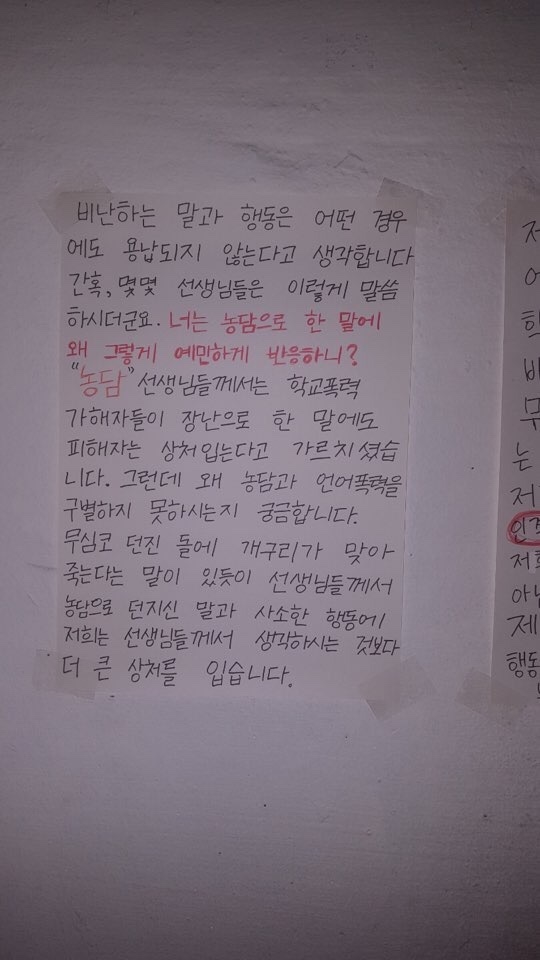 비난하는 말과 행동은 어떤 경우
에도 용납되지 않는다고 생각합니다
간혹, 몇몇 선생님들은 이렇게 말씀
하시더군요. 너는 농담으로 한 말에
왜 그렇게 예민하게 반응하니?
"농담" 선생님들께서는 학교폭력
가해자들이 장난으로 한 말에도
피해자는 상처입는다고 가르치셨습
니다. 그런데 왜 농담과 언어폭력을
구별하지 못하시는지 궁금합니다.
무심코 던진 돌에 개구리가 맞아
죽는다는 말이 있듯이 선생님들께서
농담으로 던지신 말과 사소한 행동에
저희는 선생님들께서 생각하시는 것보다
더 큰 상처를 입습니다.
저
어
는
아
제
행동